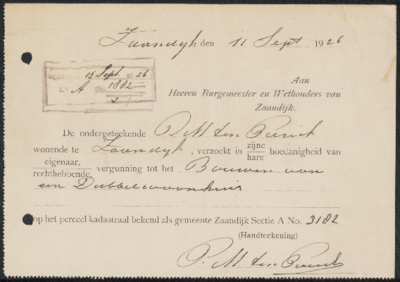 Zaandijk den 11 Sept 1926
15 Sept. 26
A 1882
2
Aan
Heeren Burgemeester en Wethouders van
Zaandijk.
De ondergeteekende P. M. ten
wonende te Zaandijk, verzoekt in zijne/hare hoedanigheid van
eigenaar,/rechthebbende, vergunning tot het Bouwen van
een Dubbelwoonhuis
op het perceel kadastraal bekend als gemeente Zaandijk Sectie A No. 3182
(Handteekening)
P. M. ten